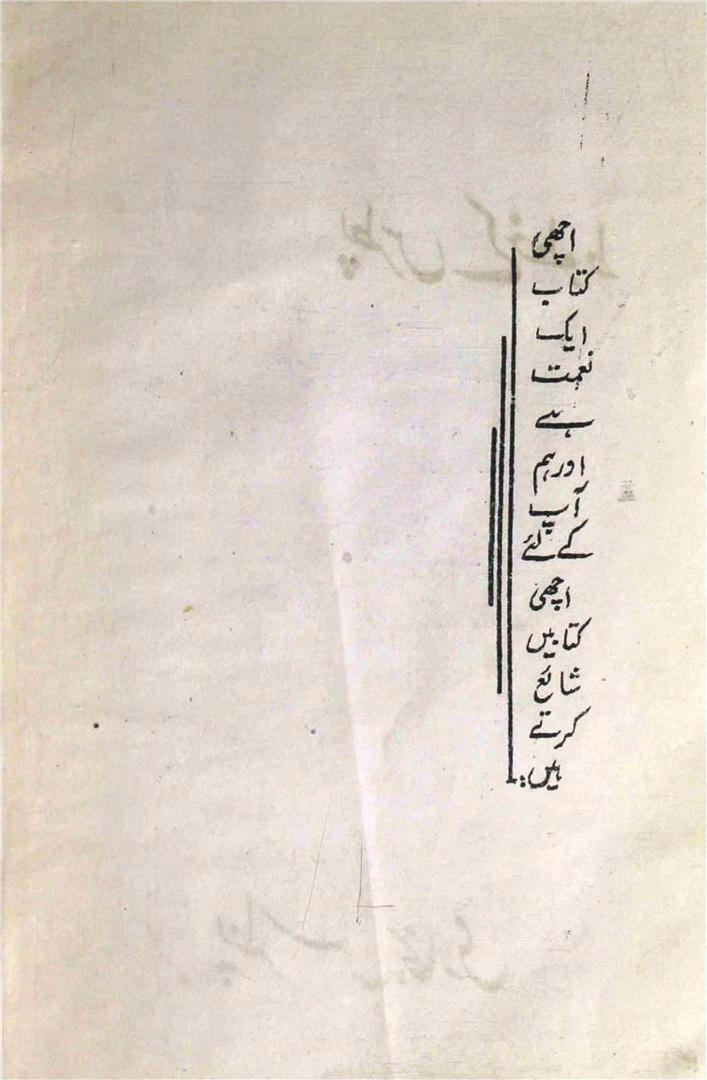 اچھی
کتاب
ایک
نعمت
ہے
اور ہم
آپ
کے لئے
اچھی
کتابیں
شائع
کرتے
ہیں :